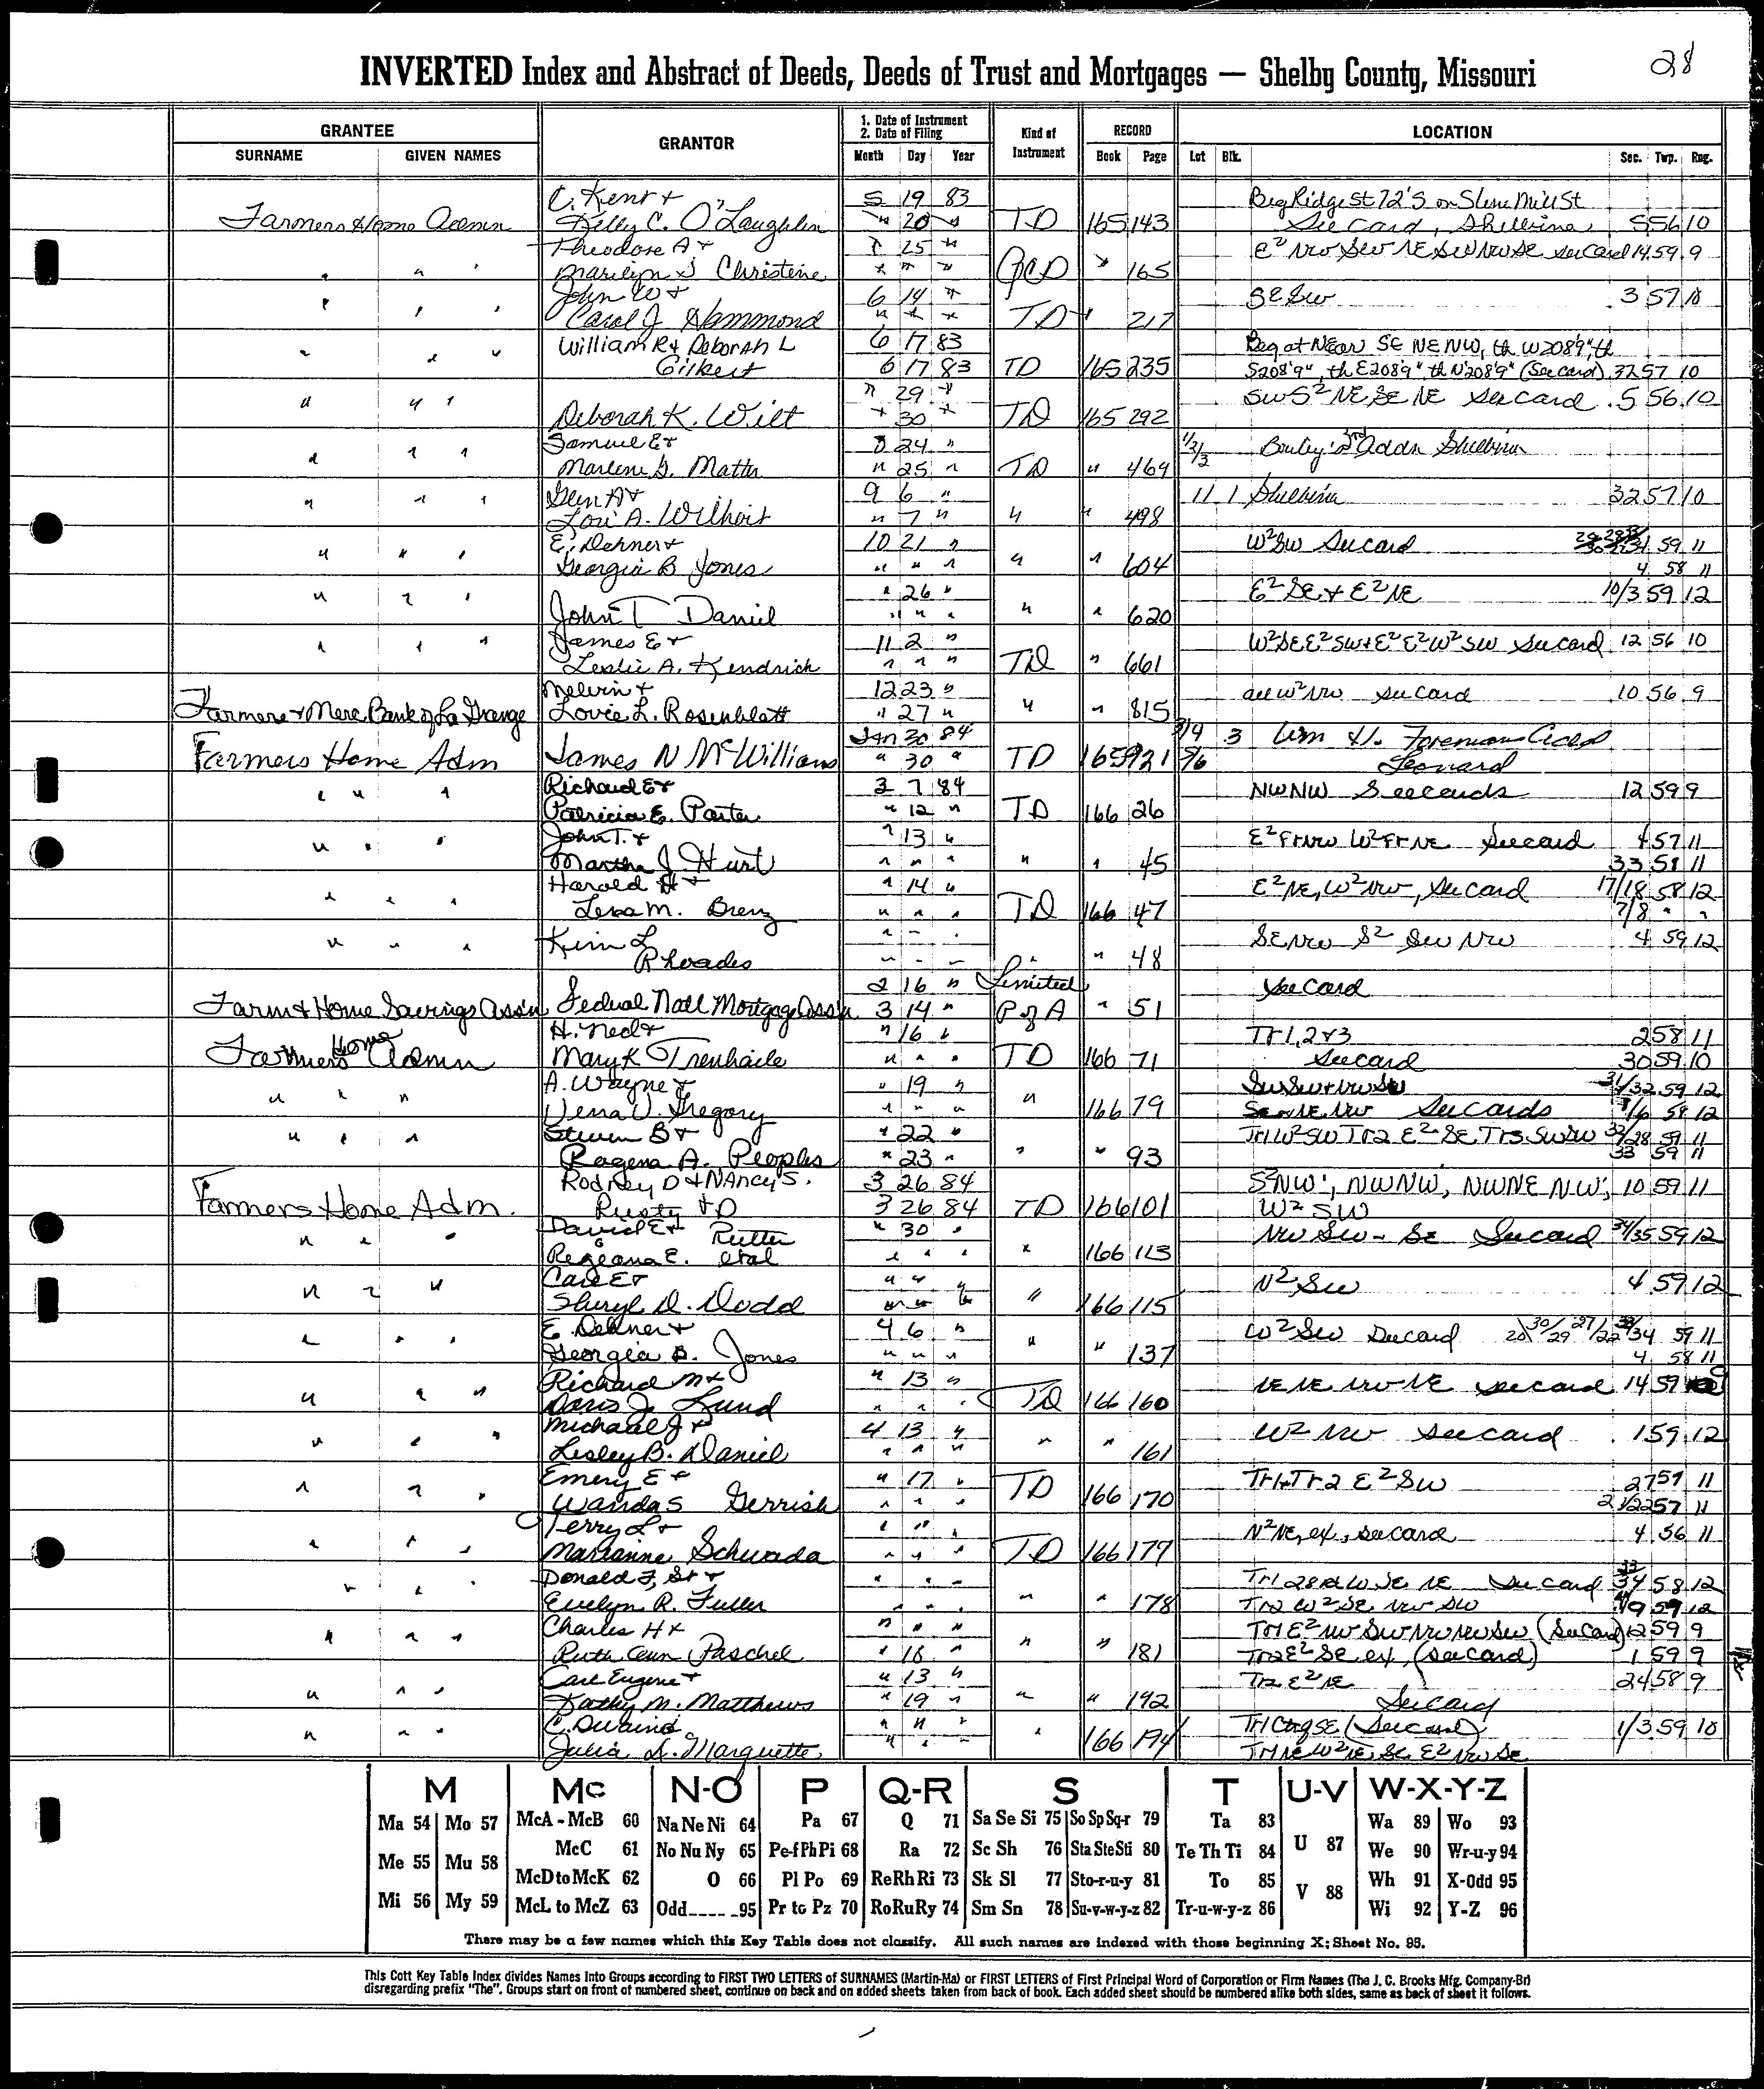 28
INVERTED Index and Abstract of Deeds, Deeds of Trust and Mortgages — Shelby County, Missouri
GRANTEE GRANTOR 1. Date of Instrument 2. Date of Filing Kind of Instrument RECORD LOCATION
SURNAME GIVEN NAMES Month Day Year Book Page Lot Blk. Sec. Twp. Rng.
C. Kent + 5 19 83 Beg Ridge St 72'S on Mill St
Farmers Home Admn Kelly C. O'Laughlin " 20 " TD 165 143 See Card, Shelbina 5 56 10
Theodore A + 25 " E² NW SW NE SW NW SE see Card 14 59 9
" " " Marilyn J Christine " " " " 165
John W + 6 14 " SE SW 3 57 10
" " " Carol J Hammond " " " TD " 217
William R + Deborah L 6 17 83 Beg at NE cor SE NE NW, th W 208'9", th
" " " Gilkert 6 17 83 TD 165 235 S 208'9", th E 208'9", th N 208'9" (See card) 32 57 10
" 29 " SW S² NE SE NE see card 5 56 10
" " " Deborah K. Wilt " 30 " TD 165 292
Samuel E + 24 " 1/2/3 3rd Addn Shelbina
" " " Marlene G. Matter " 25 " TD " 469
Glen A + 9 6 " 11 1 Shelbina 32 57 10
" " " Lori A. Wilhoit " 7 " " " 498
E. Dehner + 10 21 " W² SW See card 59 11
" " " Georgia B Jones " " " " " 604 4 58 11
" 26 " E² SE + E² NE 10/3 59 12
" " " John T Daniel " " " " " 620
James E + 11 2 " W² SE E² SW + E² E² W² SW See card 12 56 10
" " " Leslie A. Kendrick " " " TD " 661
Melvin + 12 23 " all W² NW see card 10 56 9
Farmers + Merc Bank of La Grange Lovie L. Rosenblatt " 27 " " " 815
Jan 30 84 3/4 3 Wm H. Foreman Addn
Farmers Home Adm James N McWilliams " 30 " TD 165 921 5/6 Leonard
Richard E + 3 7 84 NW NW See cards 12 59 9
" " " Patricia E. Porter " 12 " TD 166 26
John T. + " 13 " E² Fr NW W² Fr NE See card 4 57 11
" " " Martha J Hurt " " " " " 45 33 58 11
Harold H + " 14 " E² NE, W² NW, See card 17/18 58 12
" " " Lesa M. Brenz " " " TD 166 47 7/8 " "
Kim L " " " SE NW S² SW NW 4 59 12
" " " Rhoades " " " " 48
2 16 " Limited See Card
Farm + Home Savings Ass'n Federal Natl Mortgage Ass'n 3 14 " P of A " 51
H. Ned + " 16 " Tr 1, 2 + 3 2 58 11
Farmers Home Admn Mary K Trenhaile " " " TD 166 71 See card 30 59 10
A. Wayne + " 19 " SW SW + NW SW 31/32 59 12
" " " Verna V. Gregory " " " " 166 79 See cards 58 12
Steven B + " 22 " Tr 1 W² SW Tr 2 E² SE Tr 3 SW SW 59 11
" " " Ragena A. Peoples " 23 " " " 93 33 59 11
Rodney D + Nancy S. 3 26 84 S² NW, NW NW, NW NE NW; 10 59 11
Farmers Home Adm. Rusty + D 3 26 84 TD 166 101 W² SW
David E + Rutter " 30 " NW SW - SE See card 34/35 59 12
" " " Regeana E. etal " " " " 166 113
Carl E + " " " N² SW 4 59 12
" " " Sheryl D. Dodd " " " " 166 115
E. Dehner + 4 6 " W² SW See card 59 11
" " " Georgia B. Jones " " " " " 137 4 58 11
Richard M + " 13 " NE NE NW NE see card 14 59
" " " Doris J Lund " " " TD 166 160
Michael J + 4 13 " W² NW see card 1 59 12
" " " Lesley B. Daniel " " " " " 161
Emery E + " 17 " Tr 1 + Tr 2 E² SW 11
" " " Wanda S Gerrish " " " TD 166 170 57 11
Terry L + " " " N² NE, ex, see card 4 56 11
" " " Marianne Schwada " " " TD 166 177
Donald F, Sr + " " " See card 58 12
" " " Evelyn R. Fuller " " " " " 178 Tr 2 W² SE NW SW 59 12
Charles H + " " " Tr 1 E² NW SW NW NW SW (See card) 12 59 9
" " " Ruth Ann Paschel " 16 " " " 181 Tr 2 E² SE ex, (see card) 1 59 9
Carl Eugene + " 13 " Tr 2 E² NE 24 58 9
" " " Kathy M. Matthews " 19 " " " 192 See card
C. Dwaine " " " (See card) 1/3 59 10
" " " Julia L. Marquette " " " " 166 194
M Mc N-O P Q-R S T U-V W-X-Y-Z
Ma 54 Mo 57 McA - McB 60 Na Ne Ni 64 Pa 67 Q 71 Sa Se Si 75 So Sp Sq-r 79 Ta 83 U 87 Wa 89 Wo 93
Me 55 Mu 58 McC 61 No Nu Ny 65 Pe-f Ph Pi 68 Ra 72 Sc Sh 76 Sta Ste Sti 80 Te Th Ti 84 V 88 We 90 Wr-u-y 94
McD to McK 62 O 66 Pl Po 69 Re Rh Ri 73 Sk Sl 77 Sto-r-u-y 81 To 85 Wh 91 X-Odd 95
Mi 56 My 59 McL to McZ 63 Odd 95 Pr to Pz 70 Ro Ru Ry 74 Sm Sn 78 Su-v-w-y-z 82 Tr-u-w-y-z 86 Wi 92 Y-Z 96
There may be a few names which this Key Table does not classify. All such names are indexed with those beginning X; Sheet No. 95.
This Cott Key Table Index divides Names into Groups according to FIRST TWO LETTERS of SURNAMES (Martin-Ma) or FIRST LETTERS of First Principal Word of Corporation or Firm Names (The J. C. Brooks Mfg. Company-Br)
disregarding prefix "The". Groups start on front of numbered sheet, continue on back and on added sheets taken from back of book. Each added sheet should be numbered alike both sides, same as back of sheet it follows.